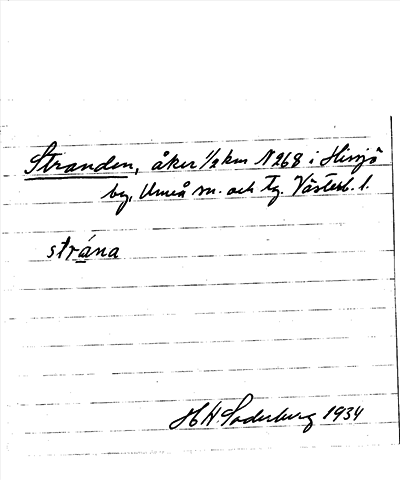 Stranden, åker 1/2 km N 268 i Hissjö
by, Umeå sn. och tg. Västerb. l.
strána
H H. Söderberg 1934